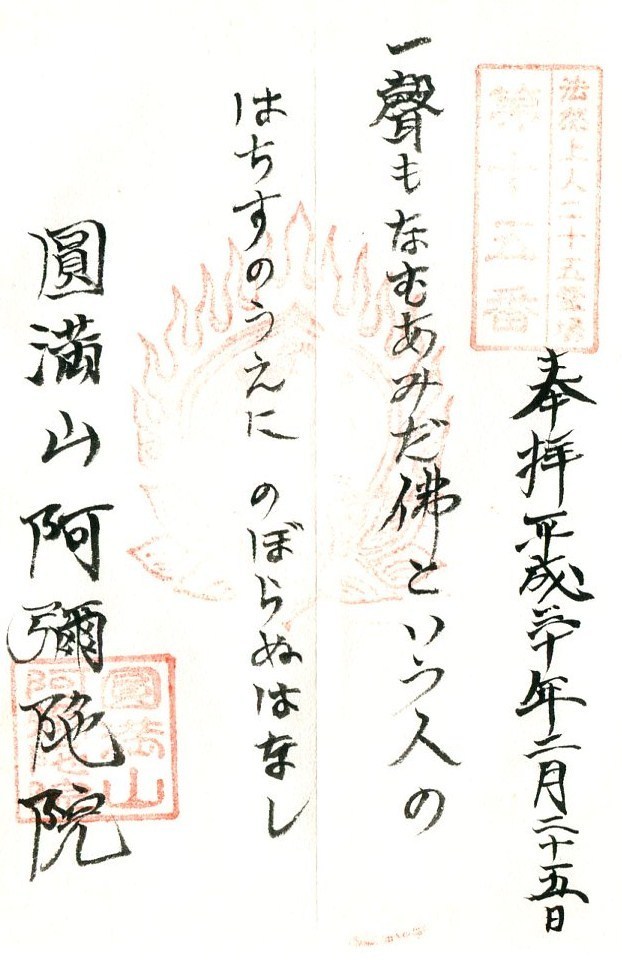 法然上人二十五霊場
第十五番
奉拝 平成 年二月二十五日
一聲もなむあみだ佛という人の
はちすのうえに のぼらぬはなし
圓満山阿彌陀院
圓満山